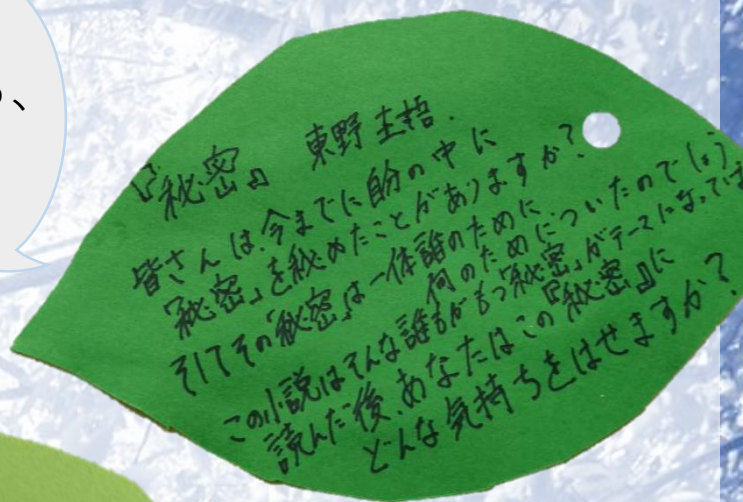 、
『秘密』 東野圭吾.
皆さんは、今までに自分の中に
「秘密」を秘めたことがありますか？
そしてその「秘密」は一体誰のために
何のためについたのでしょう
この小説はそんな誰もがもつ「秘密」がテーマになっていま
読んだ後、あなたはこの『秘密』に
どんな気持ちをはせますか？